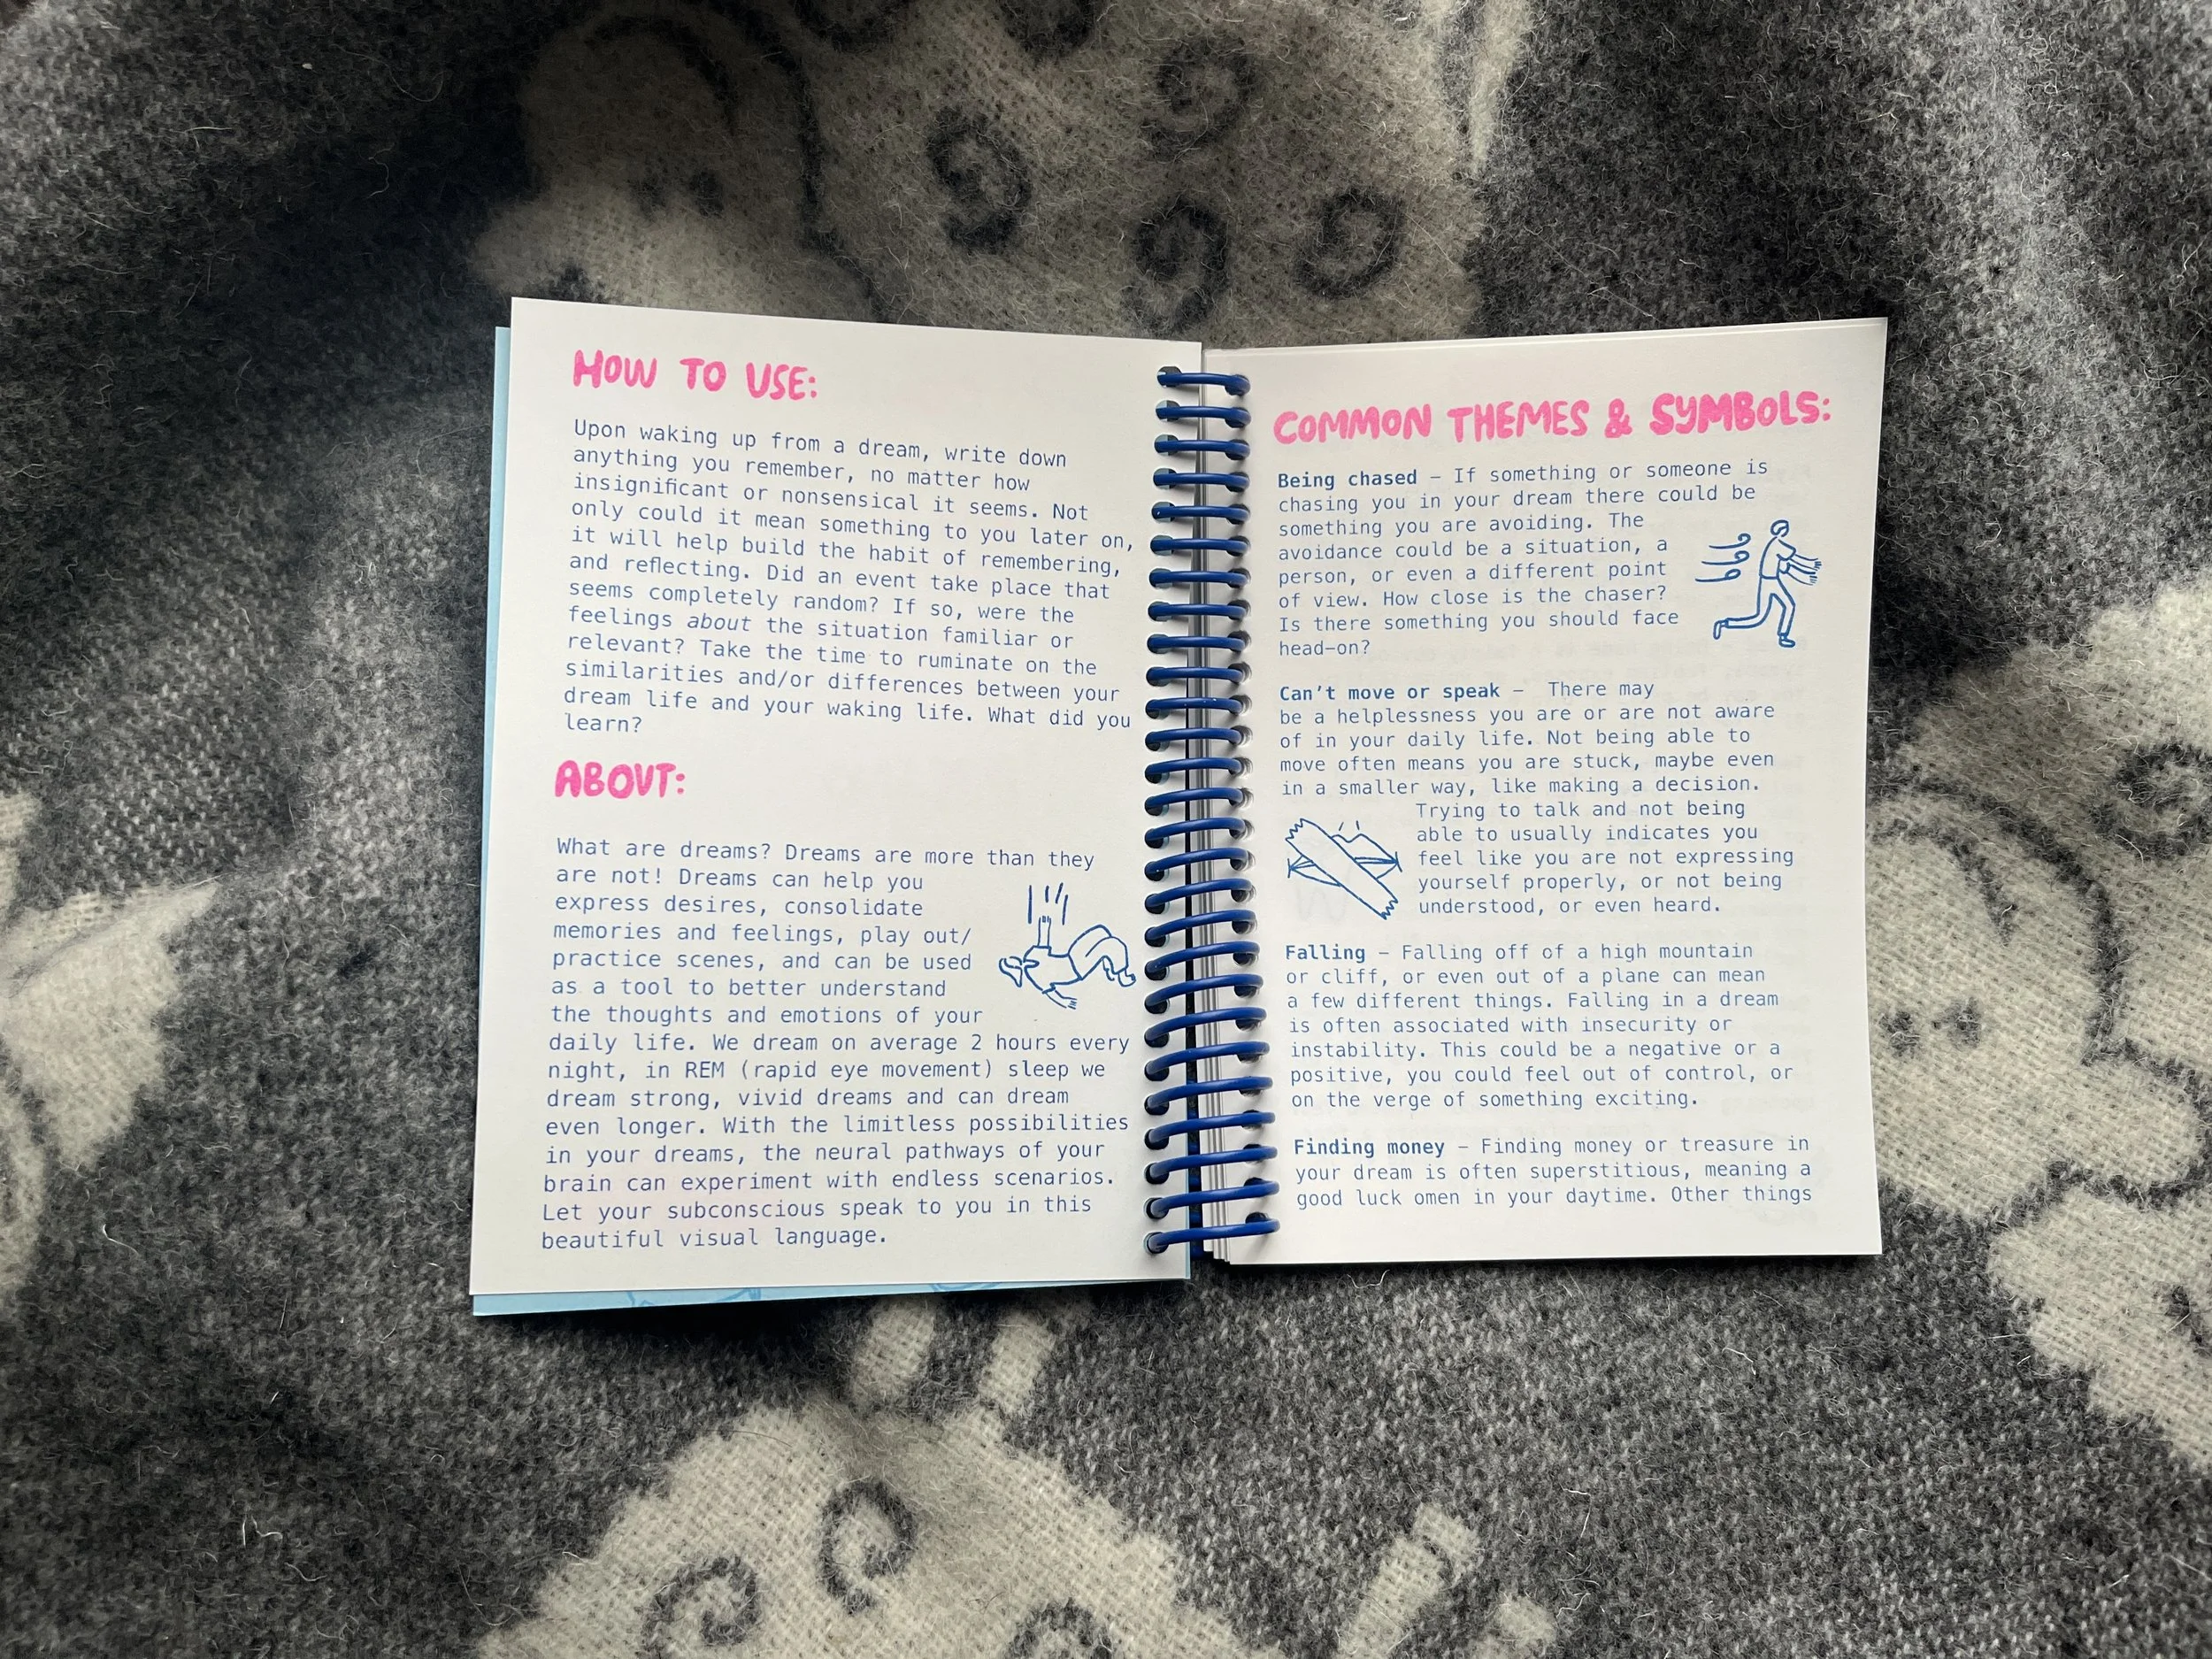 HOW TO USE:
Upon waking up from a dream, write down
anything you remember, no matter how
insignificant or nonsensical it seems. Not
only could it mean something to you later on,
it will help build the habit of remembering,
and reflecting. Did an event take place that
seems completely random? If so, were the
feelings about the situation familiar or
relevant? Take the time to ruminate on the
similarities and/or differences between your
dream life and your waking life. What did you
learn?
ABOUT:
What are dreams? Dreams are more than they
are not! Dreams can help you
express desires, consolidate
memories and feelings, play out/
practice scenes, and can be used
as a tool to better understand
the thoughts and emotions of your
daily life. We dream on average 2 hours every
night, in REM (rapid eye movement) sleep we
dream strong, vivid dreams and can dream
even longer. With the limitless possibilities
in your dreams, the neural pathways of your
brain can experiment with endless scenarios.
Let your subconscious speak to you in this
beautiful visual language.
COMMON THEMES & SYMBOLS:
Being chased – If something or someone is
chasing you in your dream there could be
something you are avoiding. The
avoidance could be a situation, a
person, or even a different point
of view. How close is the chaser?
Is there something you should face
head–on?
Can't move or speak – There may
be a helplessness you are or are not aware
of in your daily life. Not being able to
move often means you are stuck, maybe even
in a smaller way, like making a decision.
Trying to talk and not being
able to usually indicates you
feel like you are not expressing
yourself properly, or not being
understood, or even heard.
Falling – Falling off of a high mountain
or cliff, or even out of a plane can mean
a few different things. Falling in a dream
is often associated with insecurity or
instability. This could be a negative or a
positive, you could feel out of control, or
on the verge of something exciting.
Finding money – Finding money or treasure in
your dream is often superstitious, meaning a
good luck omen in your daytime. Other things